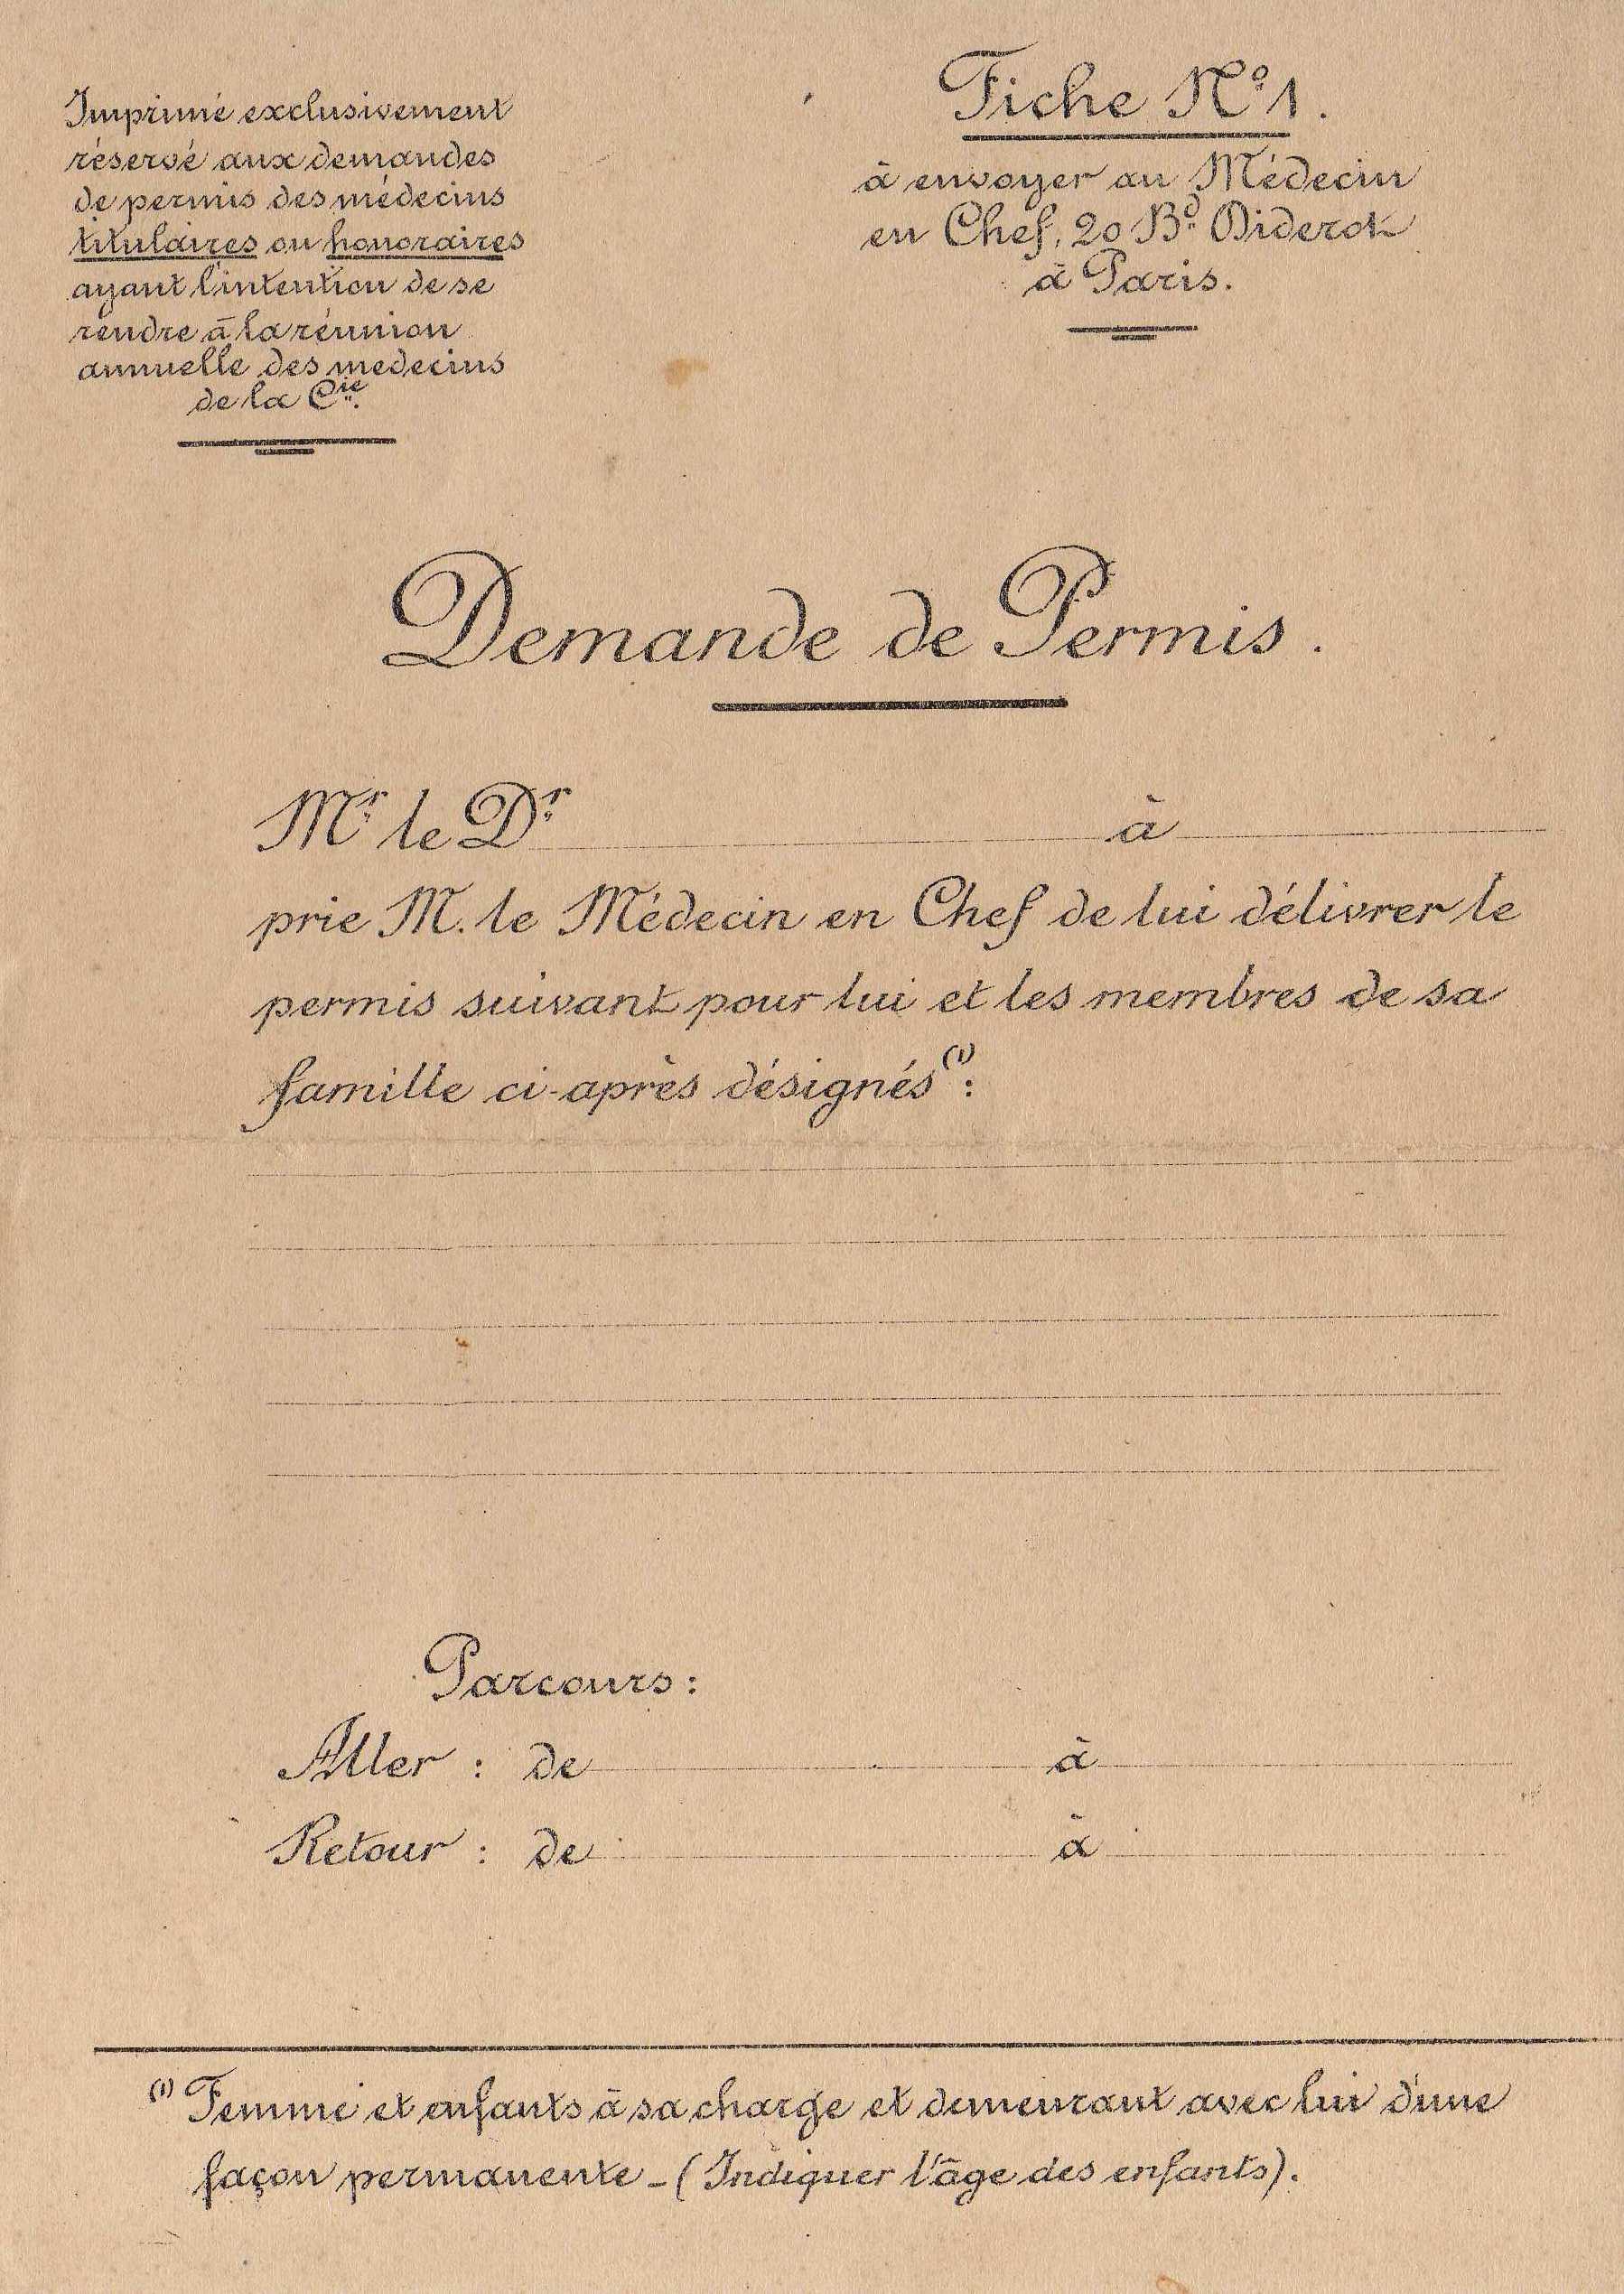 Imprimé exclusivement
réservé aux demandes
de permis des médecins
titulaires ou honoraires
ayant l'intention de se
rendre à la réunion
annuelle des medecins
de la Cie.
Fiche No 1.
à envoyer au Médecin
en Chef, 20 Bd Diderot
à Paris.
Demande de Permis.
Mr le Dr à
prie M. le Médecin en Chef de lui délivrer le
permis suivant pour lui et les membres de sa
famille ci-après désignés (1):
Parcours:
Aller : de à
Retour : de à
(1) Femme et enfants à sa charge et demeurant avec lui d'une
façon permanente - (Indiquer l'âge des enfants).